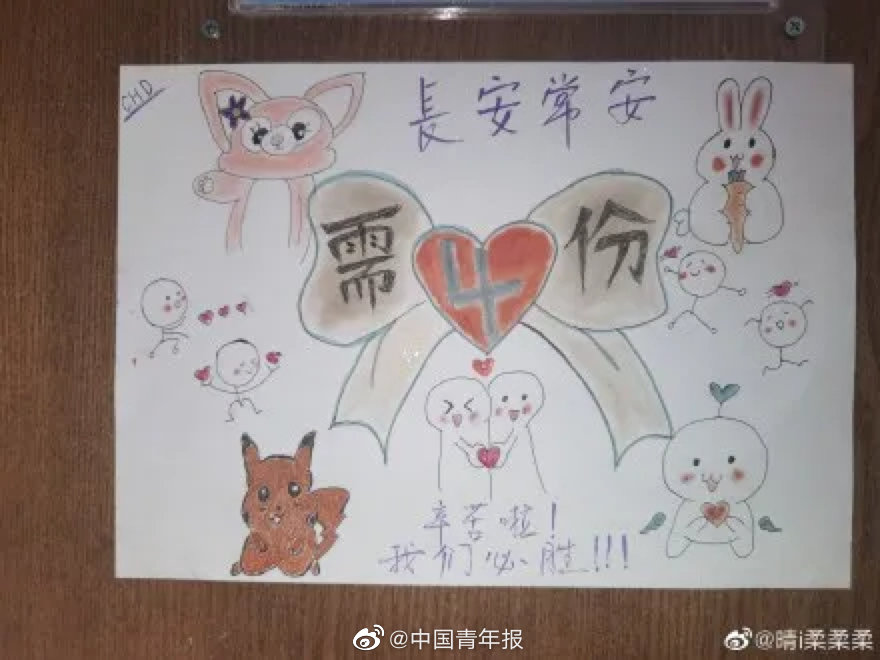 CHD
長安常安
需4份
辛苦啦！
我们必胜!!!
@中国青年报
@晴i柔柔柔